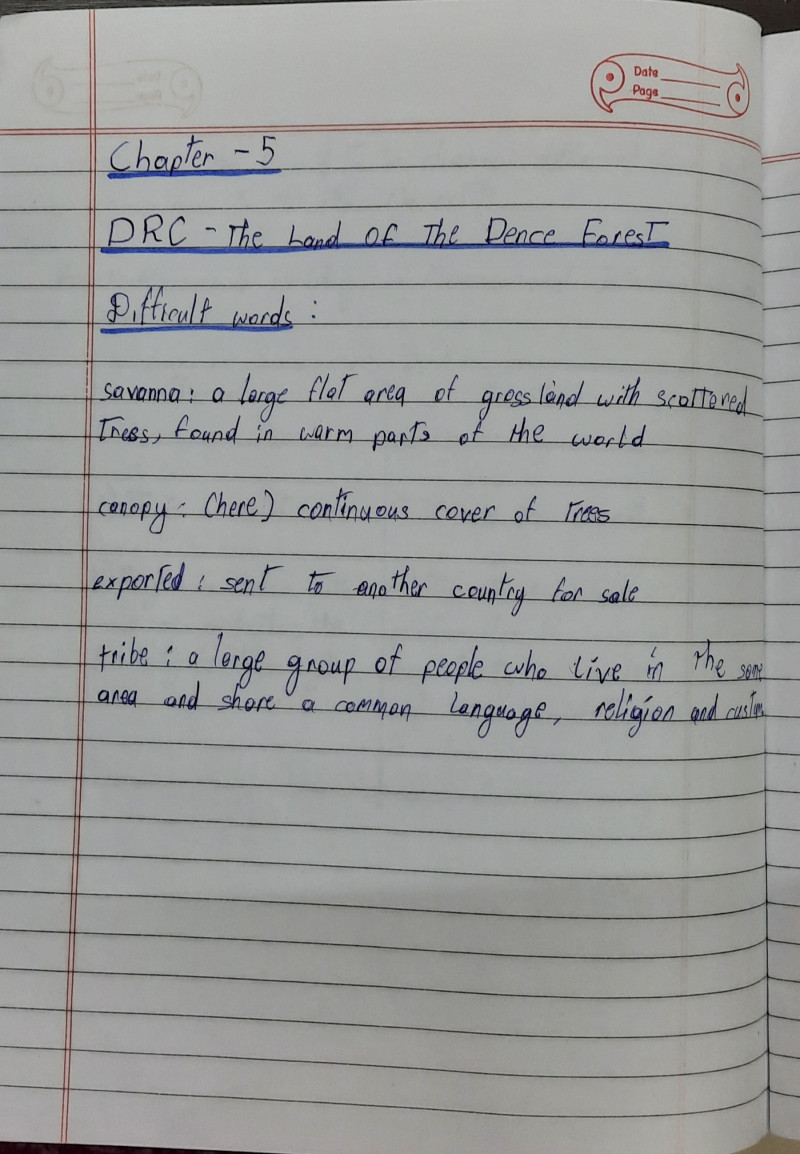 Date
Page
Chapter - 5
DRC - The Land Of The Dence Forest
Difficult words :
savanna : a large flat area of grassland with scattered
Tress, found in warm parts of the world
canopy : (here) continuous cover of Trees
exported : sent to another country for sale
tribe : a large group of people who live in the same
area and share a common language, religion and